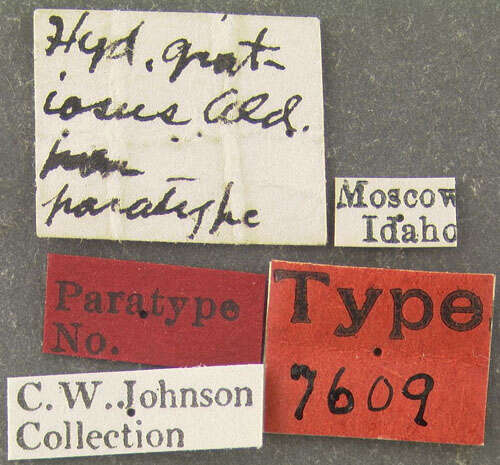 Hyd. grat-
iosus Ald.
paratype
Moscow
Idaho
Paratype
No.
Type
7609
C. W. Johnson
Collection